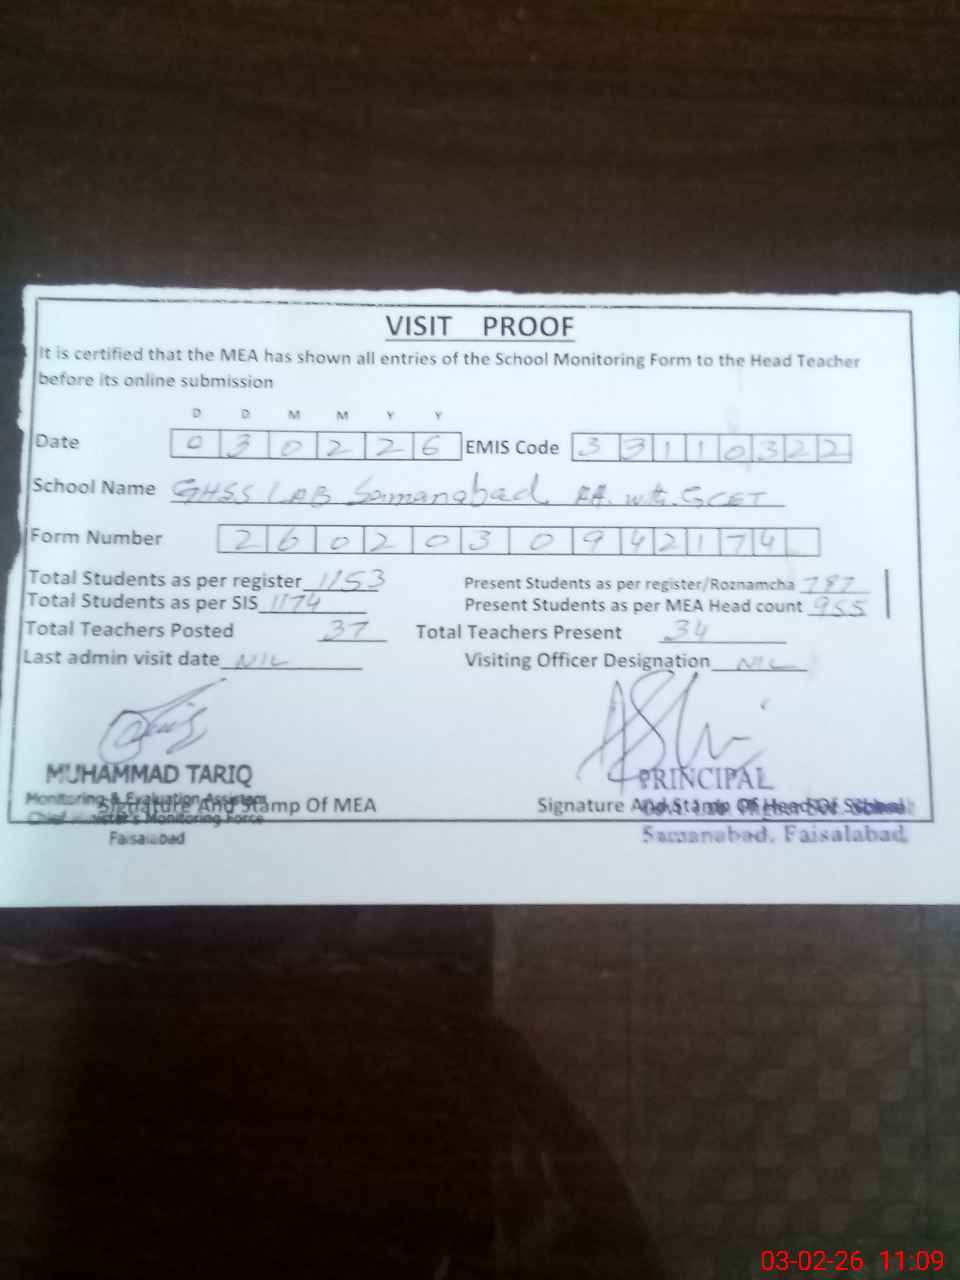 VISIT PROOF
It is certified that the MEA has shown all entries of the School Monitoring Form to the Head Teacher
before its online submission
D D M M Y Y
Date 0 3 0 2 2 6 EMIS Code 3 3 1 1 0 3 2 2
School Name GHSS LAB Samanabad GCET
Form Number 2 6 0 2 0 3 0 9 4 2 1 7 4
Total Students as per register 1153 Present Students as per register/Roznamcha 787
Total Students as per SIS 1174 Present Students as per MEA Head count 955
Total Teachers Posted 37 Total Teachers Present 34
Last admin visit date NIL Visiting Officer Designation NIL
MUHAMMAD TARIQ PRINCIPAL
Monitoring & Evaluation Assistant
Signature And Stamp Of MEA Signature And Stamp Of Head Of School
Chief Minister's Monitoring Force
Faisalabad Samanabad, Faisalabad
03-02-26 11:09